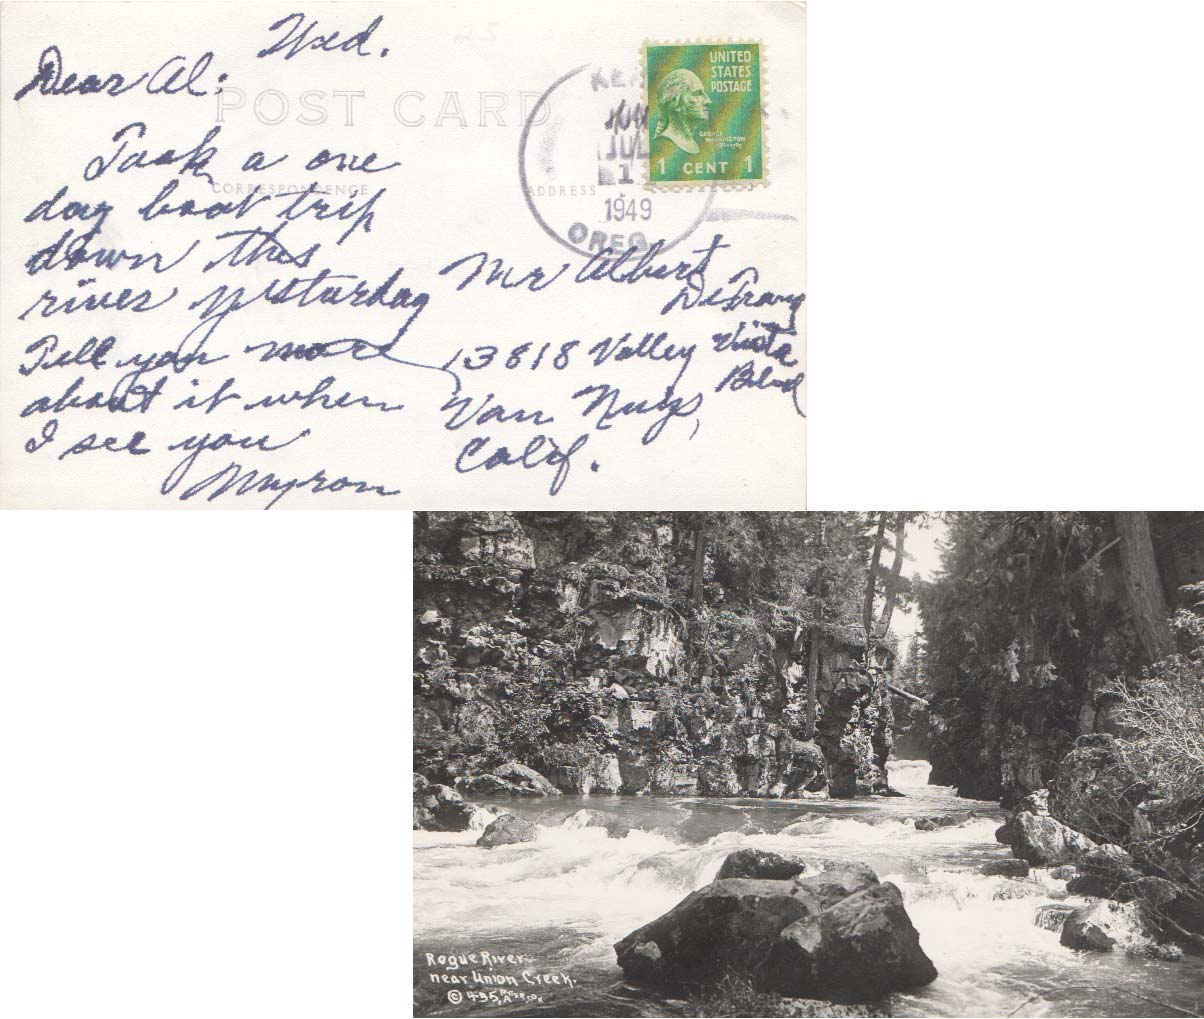 Wed.
Dear Al:
POST CARD
Took a one
day boat trip
down this
river yesturday
Tell you more
about it when
I see you
Myron
CORRESPONDENCE
ADDRESS
JUL
1
1949
OREG.
UNITED
STATES
POSTAGE
GEORGE
WASHINGTON
1 CENT 1
Mr Albert
13818 Valley Vista
Blvd
Van Nuys,
Calif.
Rogue River
near Union Creek.
© 435